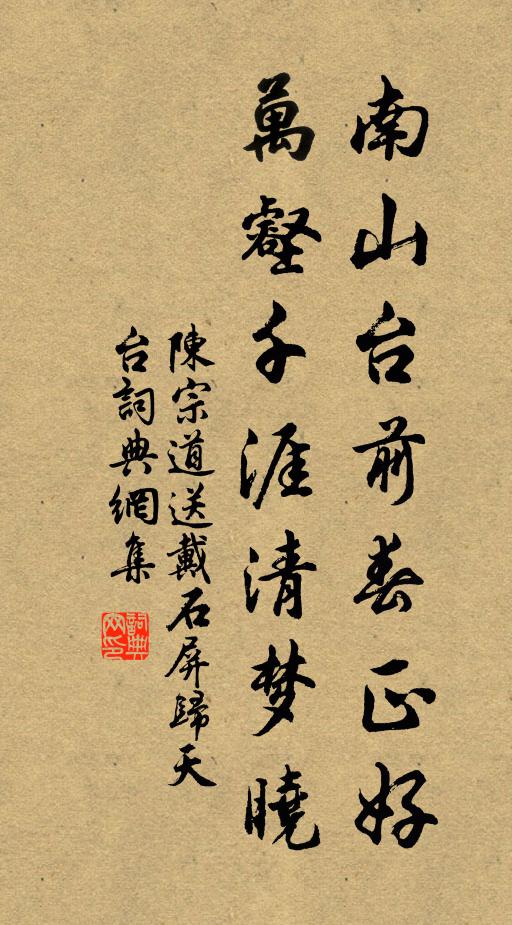 南山台前春正好
萬壑千涯清梦曉
陳宗道送戴石屏歸天
台詞典網集
詞典
网印